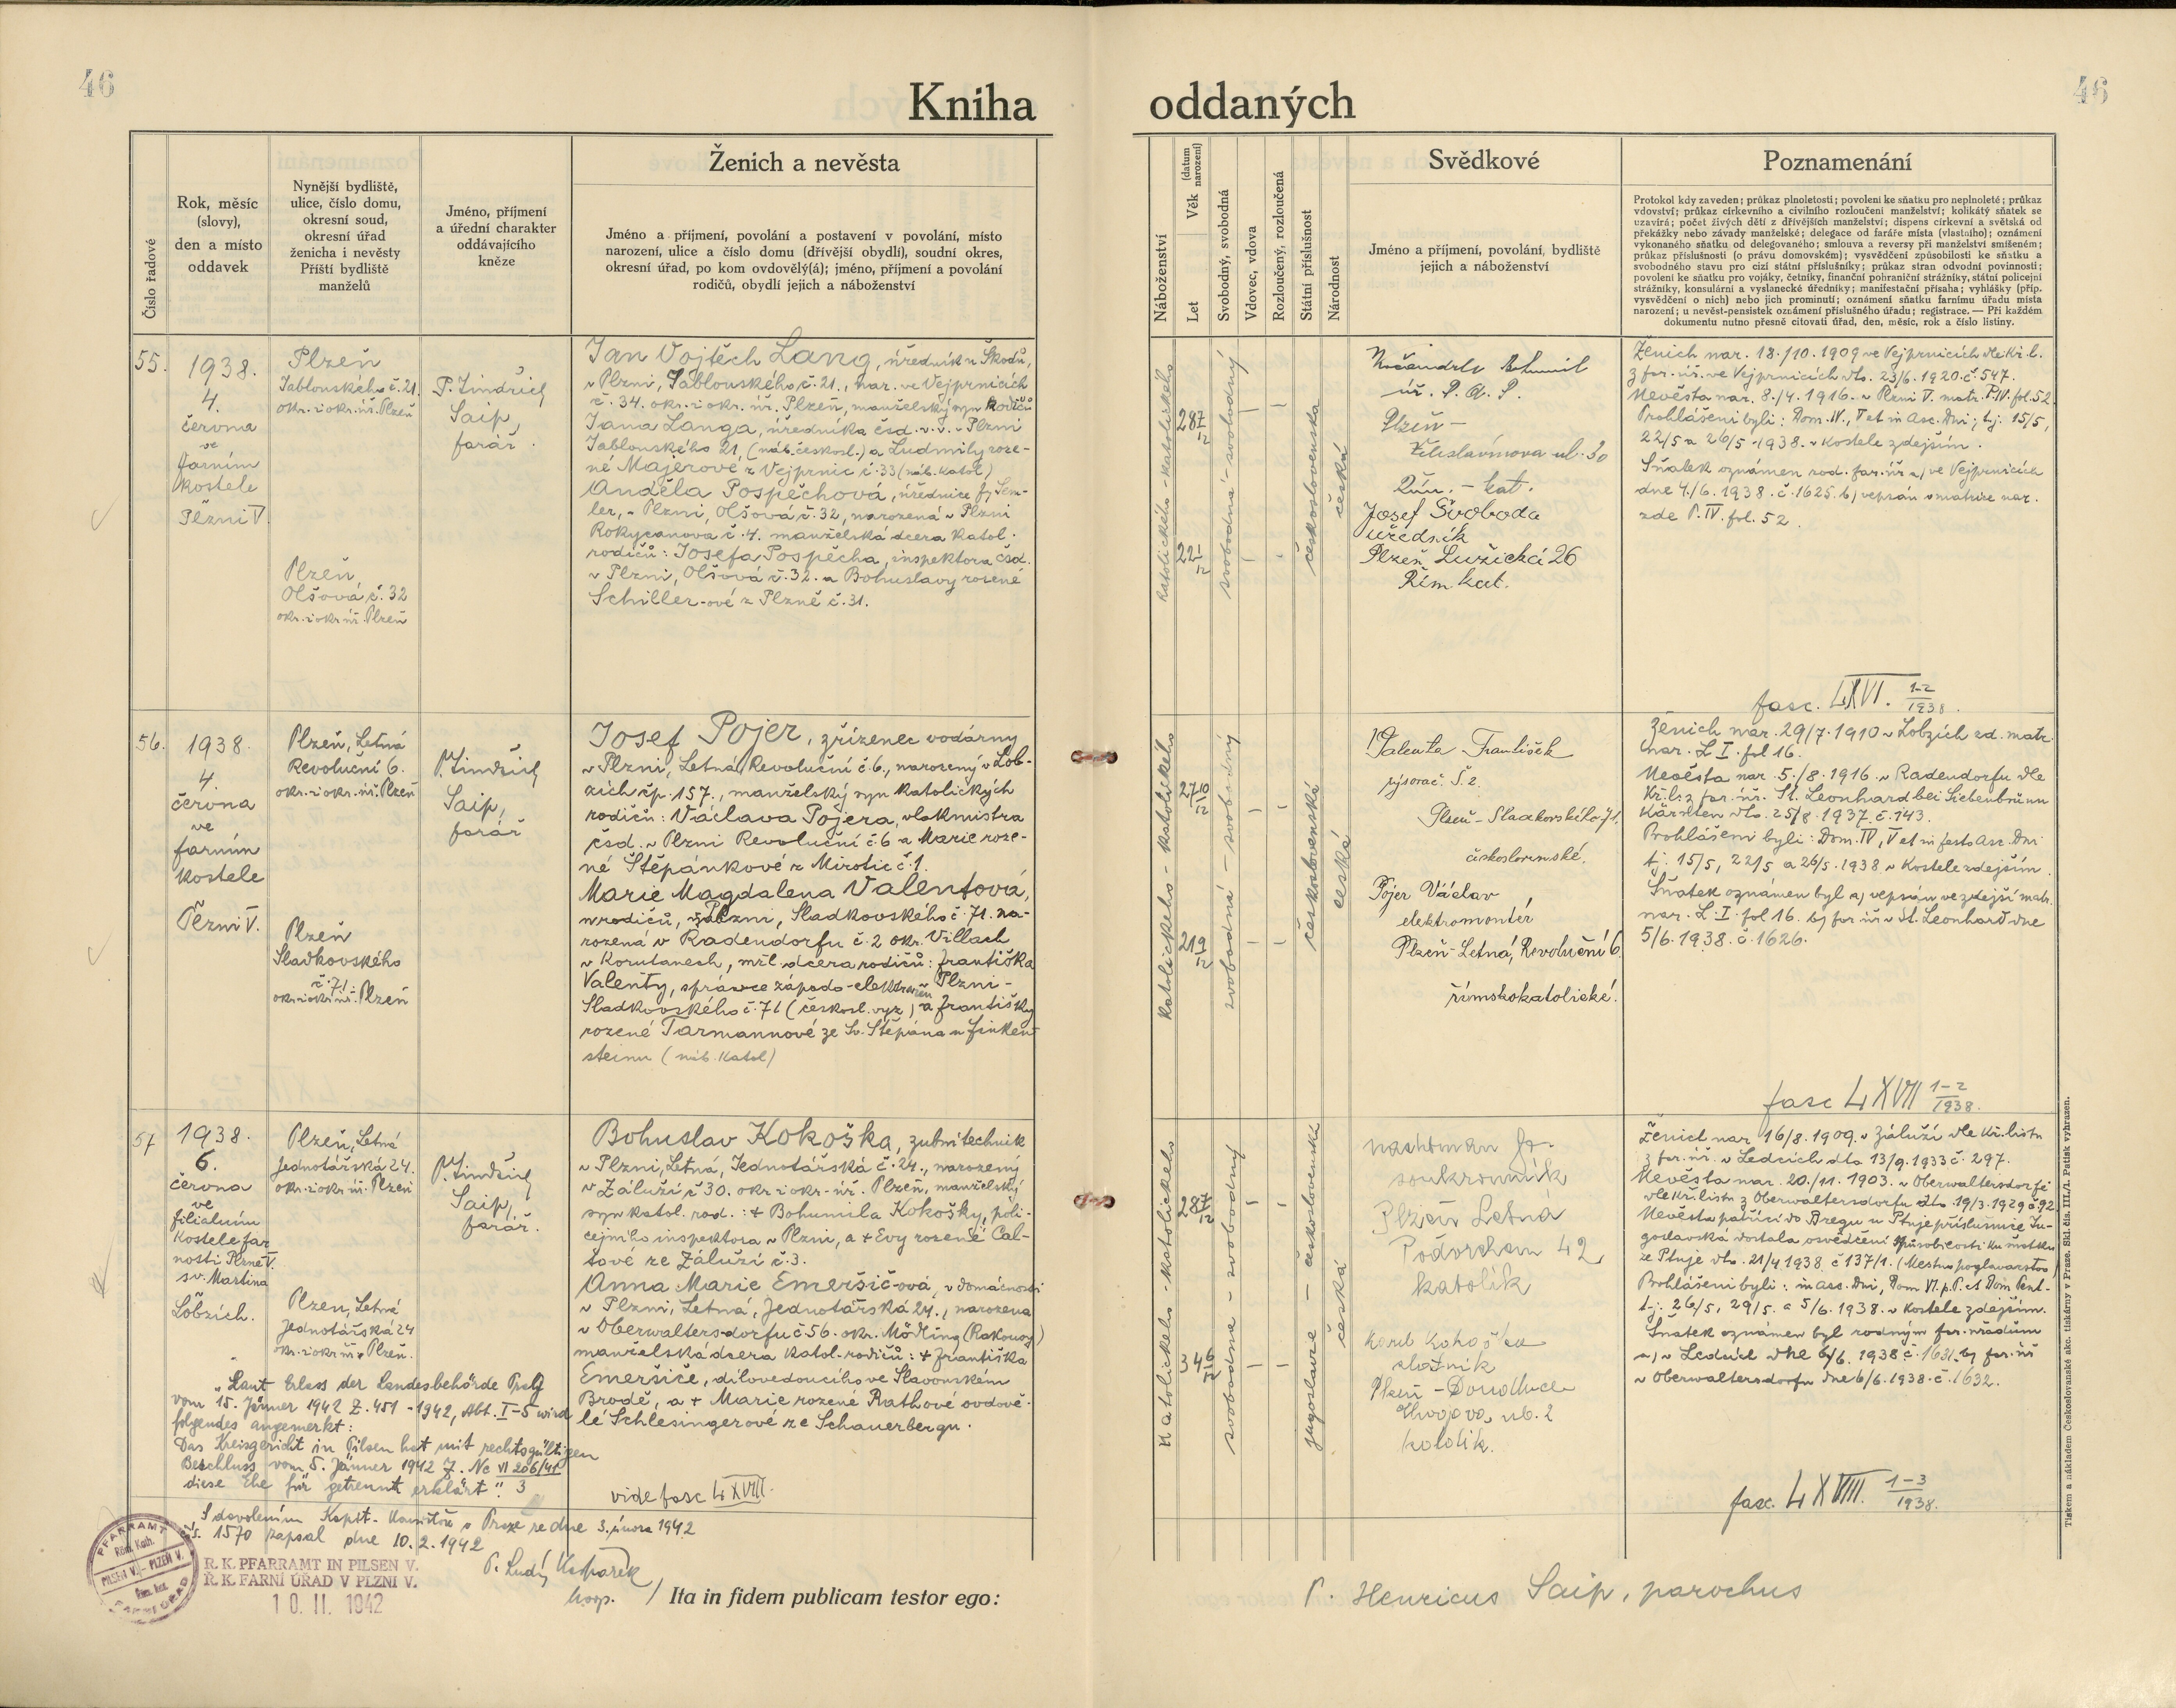 46
46
Kniha
oddaných
Číslo řadové
Rok, měsíc
(slovy),
den a místo
oddavek
Nynější bydliště,
ulice, číslo domu,
okresní soud,
okresní úřad
ženicha i nevěsty
Příští bydliště
manželů
Jméno, příjmení
a úřední charakter
oddávajícího
kněze
Ženich a nevěsta
Jméno a příjmení, povolání a postavení v povolání, místo
narození, ulice a číslo domu (dřívější obydlí), soudní okres,
okresní úřad, po kom ovdovělý(á); jméno, příjmení a povolání
rodičů, obydlí jejich a náboženství
55.
1938.
4.
června
ve
farním
kostele
Plzni V.
Plzeň
Jablonského č. 21.
okr. i okr. úř. Plzeň
Plzeň,
Olšová č. 32
okr. i okr. úř. Plzeň
P. Jindřich
Saip,
farář.
Jan Vojtěch Lang, úředník u Škodů,
v Plzni, Jablonského č. 21., nar. ve Vejprnicích
č. 34. okr. i okr. úř. Plzeň, manželský syn rodičů
Jana Langa, úředníka čsd. v. v. v Plzni
Jablonského 21, (náb. českosl.) a Ludmily roze-
né Majerové z Vejprnic č. 33 (náb. katol)
Anděla Pospěchová, úřednice fy Sem-
ler, v Plzni, Olšová č. 32, narozená v Plzni
Rokycanova č. 4. manželská dcera katol.
rodičů: Josefa Pospěcha, inspektora čsd.
v Plzni, Olšová č. 32. a Bohuslavy rozené
Schiller-ové z Plzně č. 31.
56.
1938.
4.
června
ve
farním
kostele
Plzni V.
Plzeň, Letná
Revoluční 6.
okr. i okr. úř. Plzeň
Plzeň
Sladkovského
č. 71.
okr. i okr. úř. Plzeň
P. Jindřich
Saip,
farář
Josef Pojer, zřízenec vodárny
v Plzni, Letná, Revoluční č. 6., narozený v Lob-
zích čp. 157., manželský syn katolických
rodičů: Václava Pojera, vlakmistra
čsd. v Plzni Revoluční č. 6 a Marie roze-
né Štěpánkové z Mirotic č. 1.
Marie Magdalena Valentová,
u rodičů, v Plzni, Sladkovského č. 71. na-
rozená v Radendorfu č. 2 okr. Villach
v Korutanech, mžl. dcera rodičů: Františka
Valenty, správce západo-elektráren Plzni -
Sladkovského č. 71 (českosl. vyz.) a Františky
rozené Tarmannové ze Sv. Štěpána u Finken-
steinu (náb. katol)
57
1938.
6.
června
ve
filialním
kostele far
nosti Plzně V.
sv. Martina
Lobzích.
Plzeň, Letná
Jednotářská 24.
okr. i okr. úř. Plzeň
Plzeň, Letná
Jednotářská 24
okr. i okr. úř. Plzeň.
P. Jindřich
Saip,
farář.
Bohuslav Kokoška, zubní technik
v Plzni, Letná, Jednotářská č. 24., narozený
v Záluží č 30. okr. i okr. úř. Plzeň, manželský
syn katol. rod.: + Bohumila Kokošky, poli-
cejního inspektora v Plzni, a + Evy rozené Cal-
tové ze Záluží č. 3.
Anna Marie Emeršič-ová, v domácnosti
v Plzni, Letná, Jednotářská 24., narozena
v Oberwaltersdorfu č 56. okr. Mödling (Rakousy)
manželská dcera katol. rodičů: + Františka
Emeršiče, dílovedoucího ve Slavonském
Brodě, a + Marie rozené Rathové ovdově-
lé Schlesingerové ze Schauerbergu.
vide fasc LXVIII.
"Laut Erlass der Landesbehörde Prag
vom 15. Jänner 1942 Z. 451 - 1942, Abt. I-5 wird
folgendes angemerkt:
Das Kreisgericht in Pilsen hat mit rechtsgültigen
Beschluss vom 5. Jänner 1942 Z. Nc VI 206/41
diese Ehe für getrennt erklärt". 3
S dovolením Kapit. Konsitoře v Praze ze dne 3. února 1942
čís. 1570 zapsal dne 10. 2. 1942
R. K. PFARRAMT IN PILSEN V.
Ř. K. FARNÍ ÚŘAD V PLZNI V.
10. II. 1942
PFARRAMT
Röm. Kath.
PILSEN V. - PLZEŇ V.
Řím. kat.
Ita in fidem publicam testor ego:
Náboženství
Let
Věk
(datum narození)
Svobodný, svobodná
Vdovec, vdova
Rozloučený, rozloučená
Státní příslušnost
Národnost
Svědkové
Jméno a příjmení, povolání, bydliště
jejich a náboženství
Poznamenání
Protokol kdy zaveden; průkaz plnoletosti; povolení ke sňatku pro neplnoleté; průkaz
vdovství; průkaz církevního a civilního rozloučení manželství; kolikátý sňatek se
uzavírá; počet živých dětí z dřívějších manželství; dispens církevní a světská od
překážky nebo závady manželské; delegace od faráře místa (vlastního); oznámení
vykonaného sňatku od delegovaného; smlouva a reversy při manželství smíšeném;
průkaz příslušnosti (o právu domovském); vysvědčení způsobilosti ke sňatku a
svobodného stavu pro cizí státní příslušníky; průkaz stran odvodní povinnosti;
povolení ke sňatku pro vojáky, četníky, finanční pohraniční strážníky, státní policejní
strážníky, konsulární a vyslanecké úředníky; manifestační přísaha; vyhlášky (příp.
vysvědčení o nich) nebo jich prominutí; oznámení sňatku farnímu úřadu místa
narození; u nevěst-pensistek oznámení příslušného úřadu; registrace. — Při každém
dokumentu nutno přesně citovati úřad, den, měsíc, rok a číslo listiny.
katolického - katolického
28 7/12
22 1/12
svobodná - svobodný
československá
česká
Bohumil
úř. P. A. S.
Plzeň -
ul. 30
Řím. - kat.
Josef Svoboda
úředník
Plzeň, Lužická 26
Řím. kat.
Ženich nar. 18./10. 1909 ve Vejprnicích dle kř. l.
z far. úř. ve Vejprnicích dto. 23/6. 1920. č. 547.
Nevěsta nar. 8./4. 1916. v Plzni V. matr. P. IV. fol. 52.
Prohlášeni byli: Dom. IV., V et in Asc. Dni; t.j. 15/5,
22/5 a 26/5. 1938. v kostele zdejším.
Sňatek oznámen rod. far. úř a) ve Vejprnicích
dne 4./6. 1938. č. 1625. b) vepsán v matrice nar.
zde P. IV. fol. 52.
fasc. LXVI. 1-2/1938.
katolického - katolického
27 10/12
21 9/12
svobodná - svobodný
československá
česká
Valenta František
Plzeň - Sladkovského 71.
československé.
Pojer Václav
elektromontér
Plzeň - Letná, Revoluční 6.
římskokatolické.
Ženich nar. 29/7. 1910 v Lobzích zd. matr.
nar. L. I. fol 16.
Nevěsta nar. 5./8. 1916. v Radendorfu dle
kř. l. z far. úř. St. Leonhard bei Siebenbrünn
Kärnten dto. 25/8. 1937. č. 143.
Prohlášeni byli: Dom. IV, V et in festo Asc. Dni
t.j. 15/5, 22/5 a 26/5. 1938 v kostele zdejším.
Sňatek oznámen byl a) vepsán ve zdejší matr.
nar. L. I. fol 16. b) far. úř. v St. Leonhard dne
5/6. 1938. č. 1626.
fasc LXVII 1-2/1938.
katolického - katolického
28 7/12
34 6/12
svobodná - svobodný
jugoslavie - československá
česká
soukromník
Plzeň Letná
Podvrchem 42
katolík
Karel Kokoška
Plzeň - Doudlevce
ul. 2
katolík.
Ženich nar 16/8. 1909. v Záluží dle kř. listu
z far. úř. v Ledcích dto 13/9. 1933 č. 297.
Nevěsta nar. 20./11. 1903. v Oberwaltersdorfě
dle kř. listu z Oberwaltersdorfu dto 19/3. 1929 č. 92
Nevěsta patřící do Bregu u Ptuje příslušnice Ju-
goslavská dostala osvědčení způsobilosti ku sňatku
ze Ptuje dto. 21/4 1938. č 137/1. (Mestno poglavarstvo)
Prohlášeni byli: in Asc. Dni, Dom VI. p. P. et Dom Pent-
t.j. 26/5, 29/5. a 5/6. 1938. v kostele zdejším.
Sňatek oznámen byl rodným far. úřadům
a) v Ledcích dne 6/6. 1938 č. 1631. b) far. úř
v Oberwaltersdorfu dne 6/6. 1938. č. 1632.
fasc. LXVIII. 1-3/1938.
P. Henricus Saip, parochus
Tiskem a nákladem Českoslovanské akc. tiskárny v Praze. Skl. čís. III./1. Patisk vyhrazen.